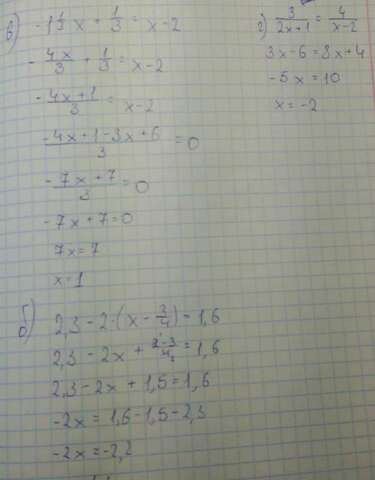 в) -1 1/3 x + 1/3 = x - 2
- 4x/3 + 1/3 = x - 2
(-4x + 1)/3 = x - 2
(-4x + 1 - 3x + 6)/3 = 0
(-7x + 7)/3 = 0
-7x + 7 = 0
7x = 7
x = 1
г) 3/(2x + 1) = 4/(x - 2)
3x - 6 = 8x + 4
-5x = 10
x = -2
б) 2,3 - 2·(x - 3/4) = 1,6
2,3 - 2x + (2·3)/4₂ = 1,6
2,3 - 2x + 1,5 = 1,6
-2x = 1,6 - 1,5 - 2,3
-2x = -2,2